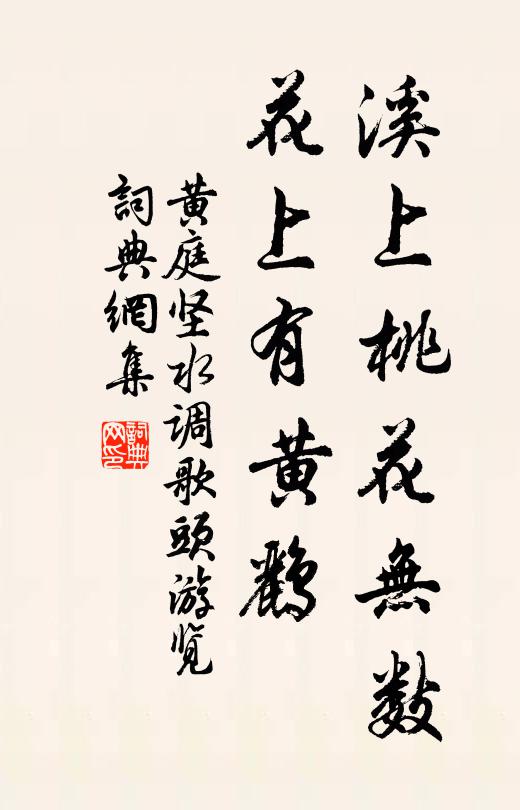 溪上桃花無數
花上有黃鸝
黄庭坚水调歌頭游览
詞典網集
詞典网印